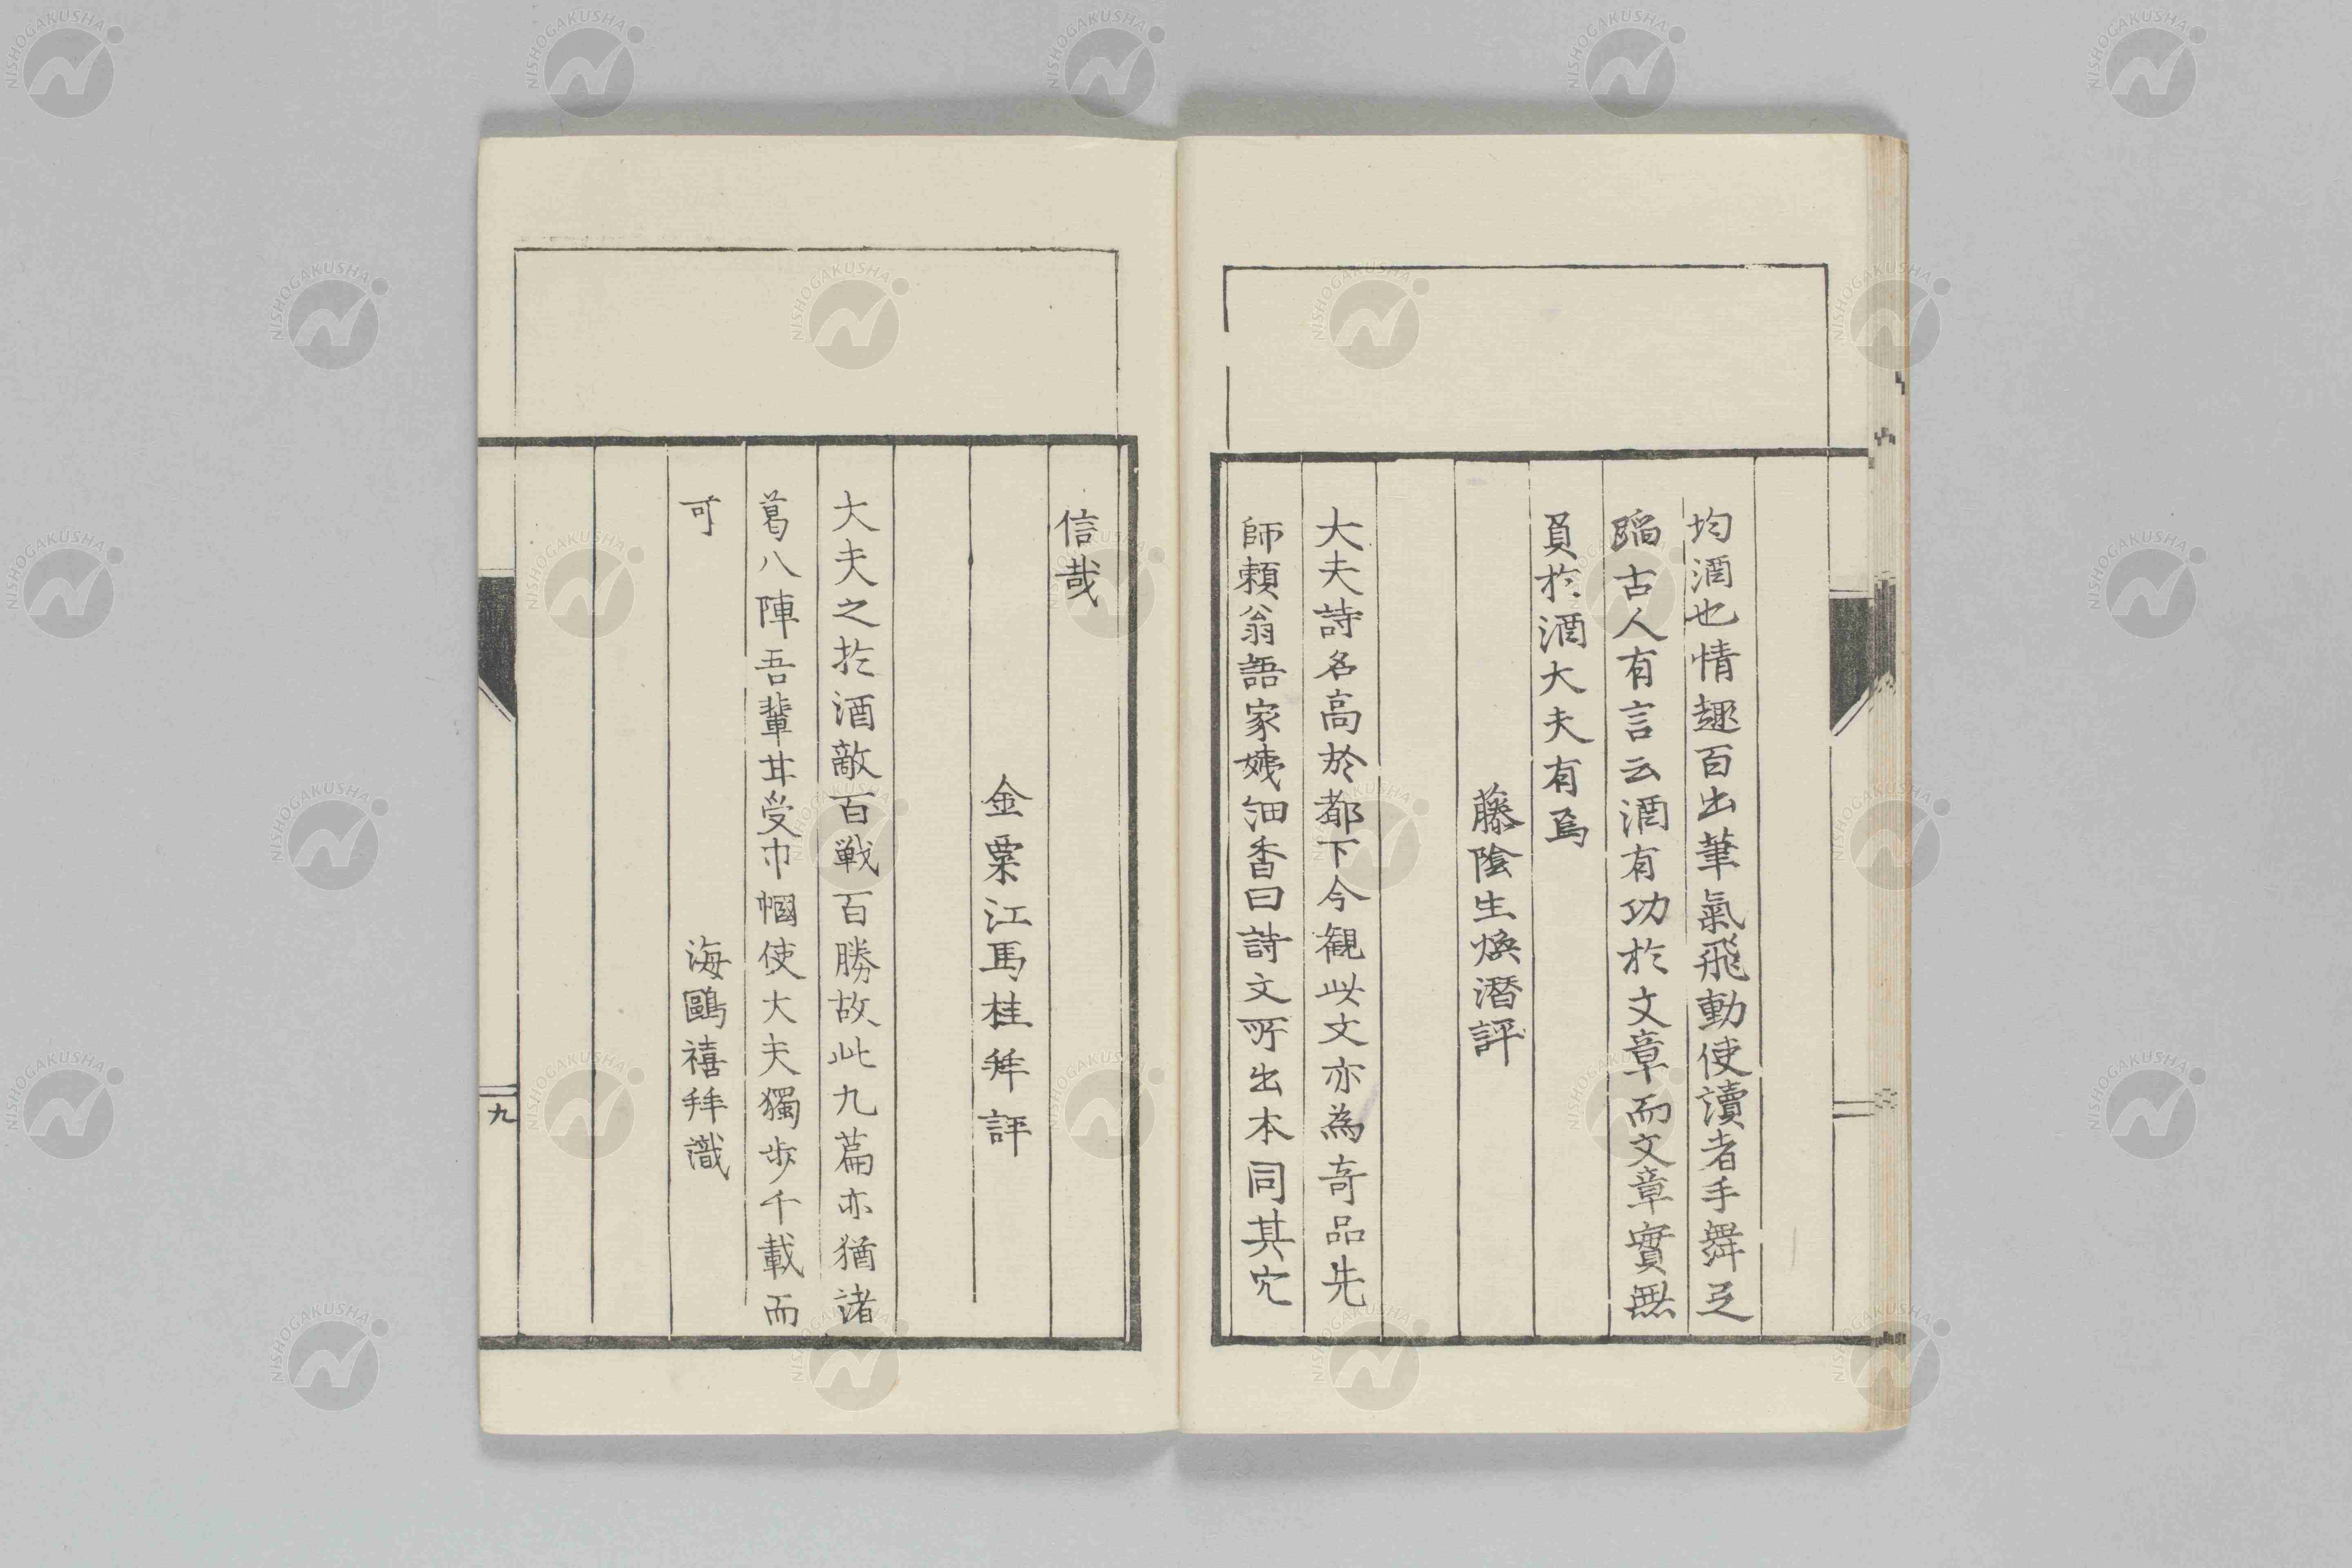 均酒也情趣百出筆氣飛動使讀者手舞足
蹈古人有言云酒有功於文章而文章實無
負於酒大夫有焉
藤陰生煥潛評
大夫詩名高於都下今観此文亦為奇品先
師頼翁語家姨細香曰詩文所出本同其究
信哉
金粟江馬桂拜評
大夫之於酒敵百戦百勝故此九篇亦猶諸
葛八陣吾輩甘受巾幗使大夫獨歩千載而
可
海鷗禧拜識
九
NISHOGAKUSHA